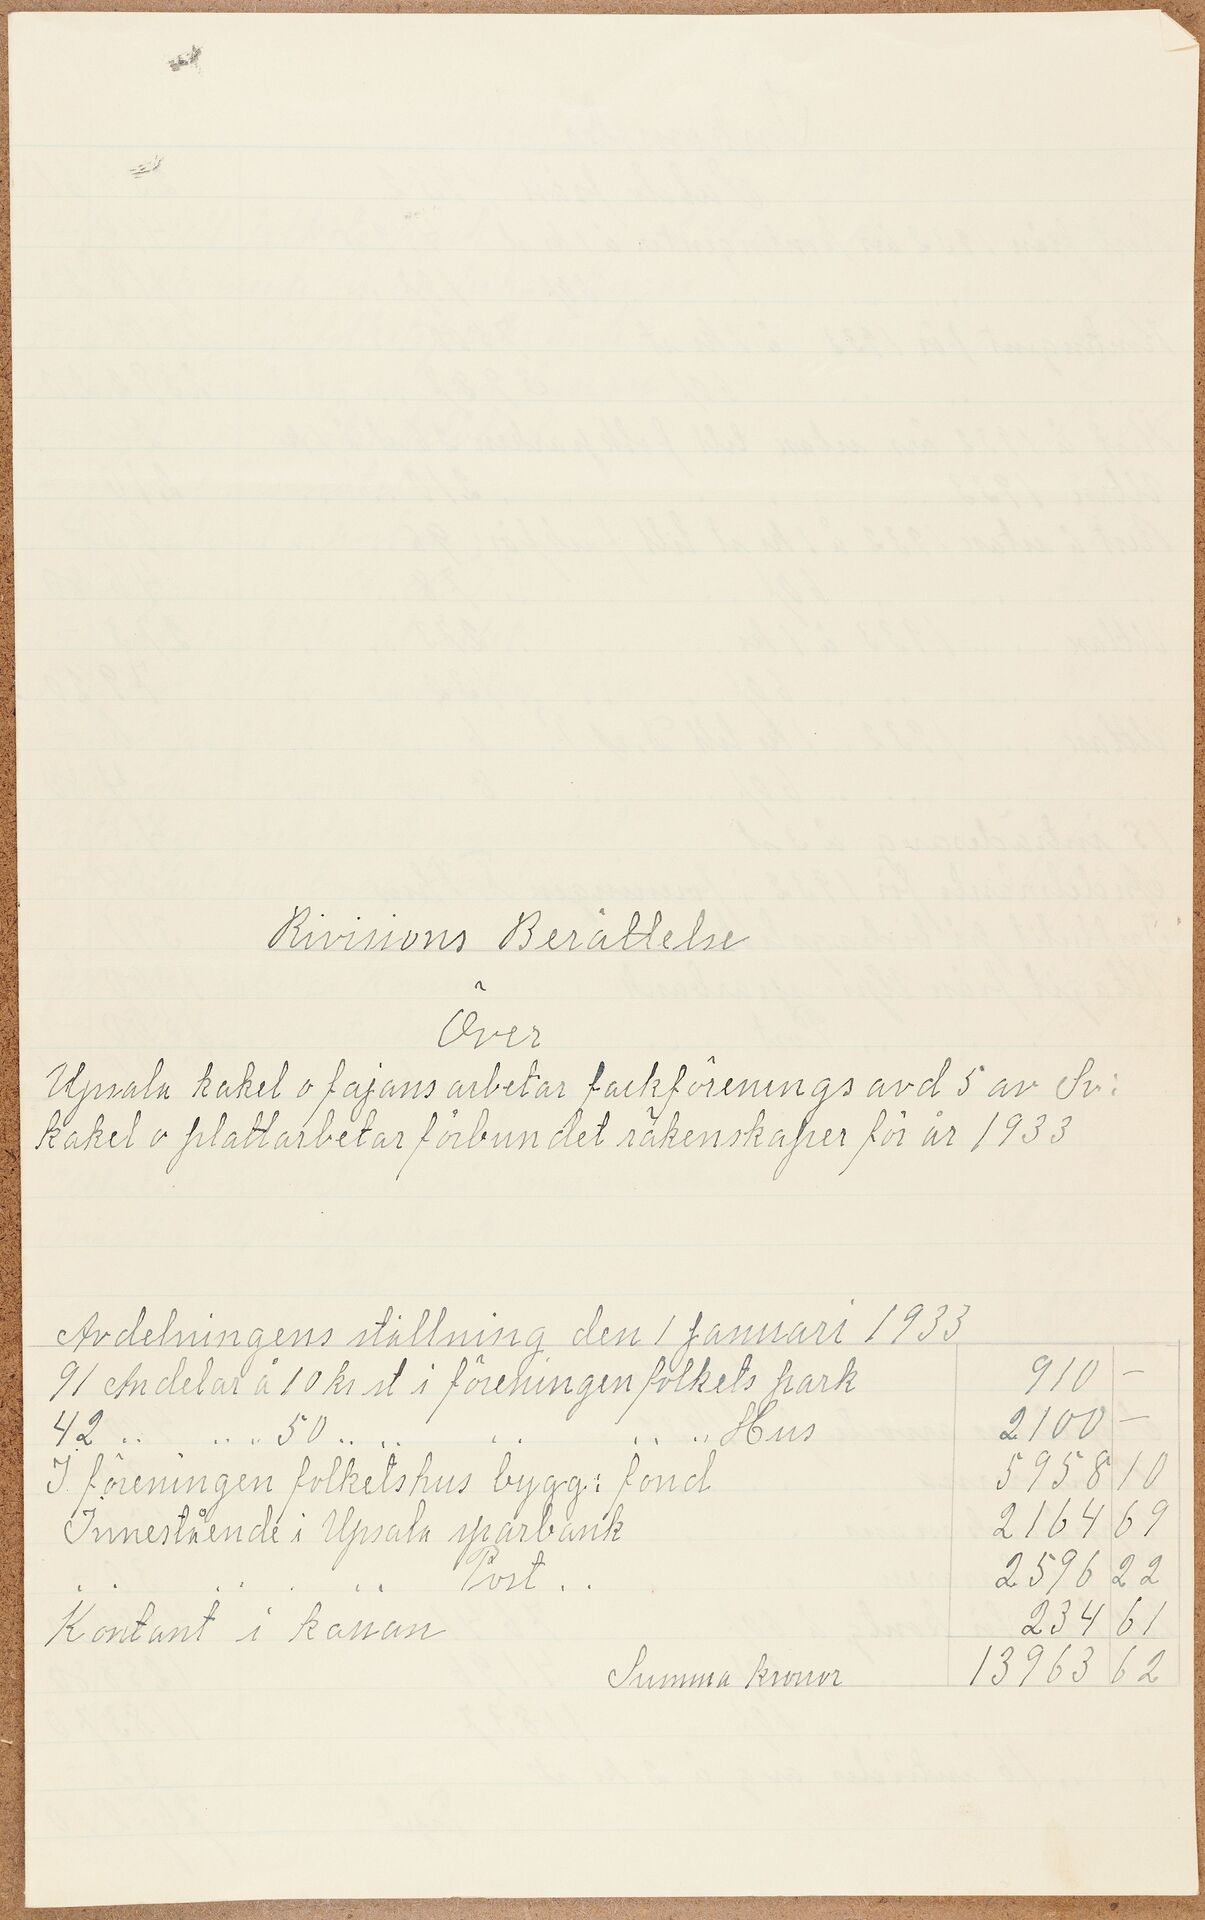 Rivisions Berättelse
Över
Upsala kakel o fajans arbetar fackförenings avd 5 av Sv:
kakel o plattarbetar förbundet räkenskaper för år 1933
Avdelningens ställning den 1 Januari 1933
91 Andelar à 10 kr st i föreningen folkets park 910 —
42 .. .. . 50 .. .. .. .. .. Hus 2100 —
I föreningen folketshus bygg: fond 5958 10
Innestående i Upsala sparbank 2164 69
.. .. . .. Post .. 2596 22
Kontant i kassan 234 61
Summa kronor 13963 62